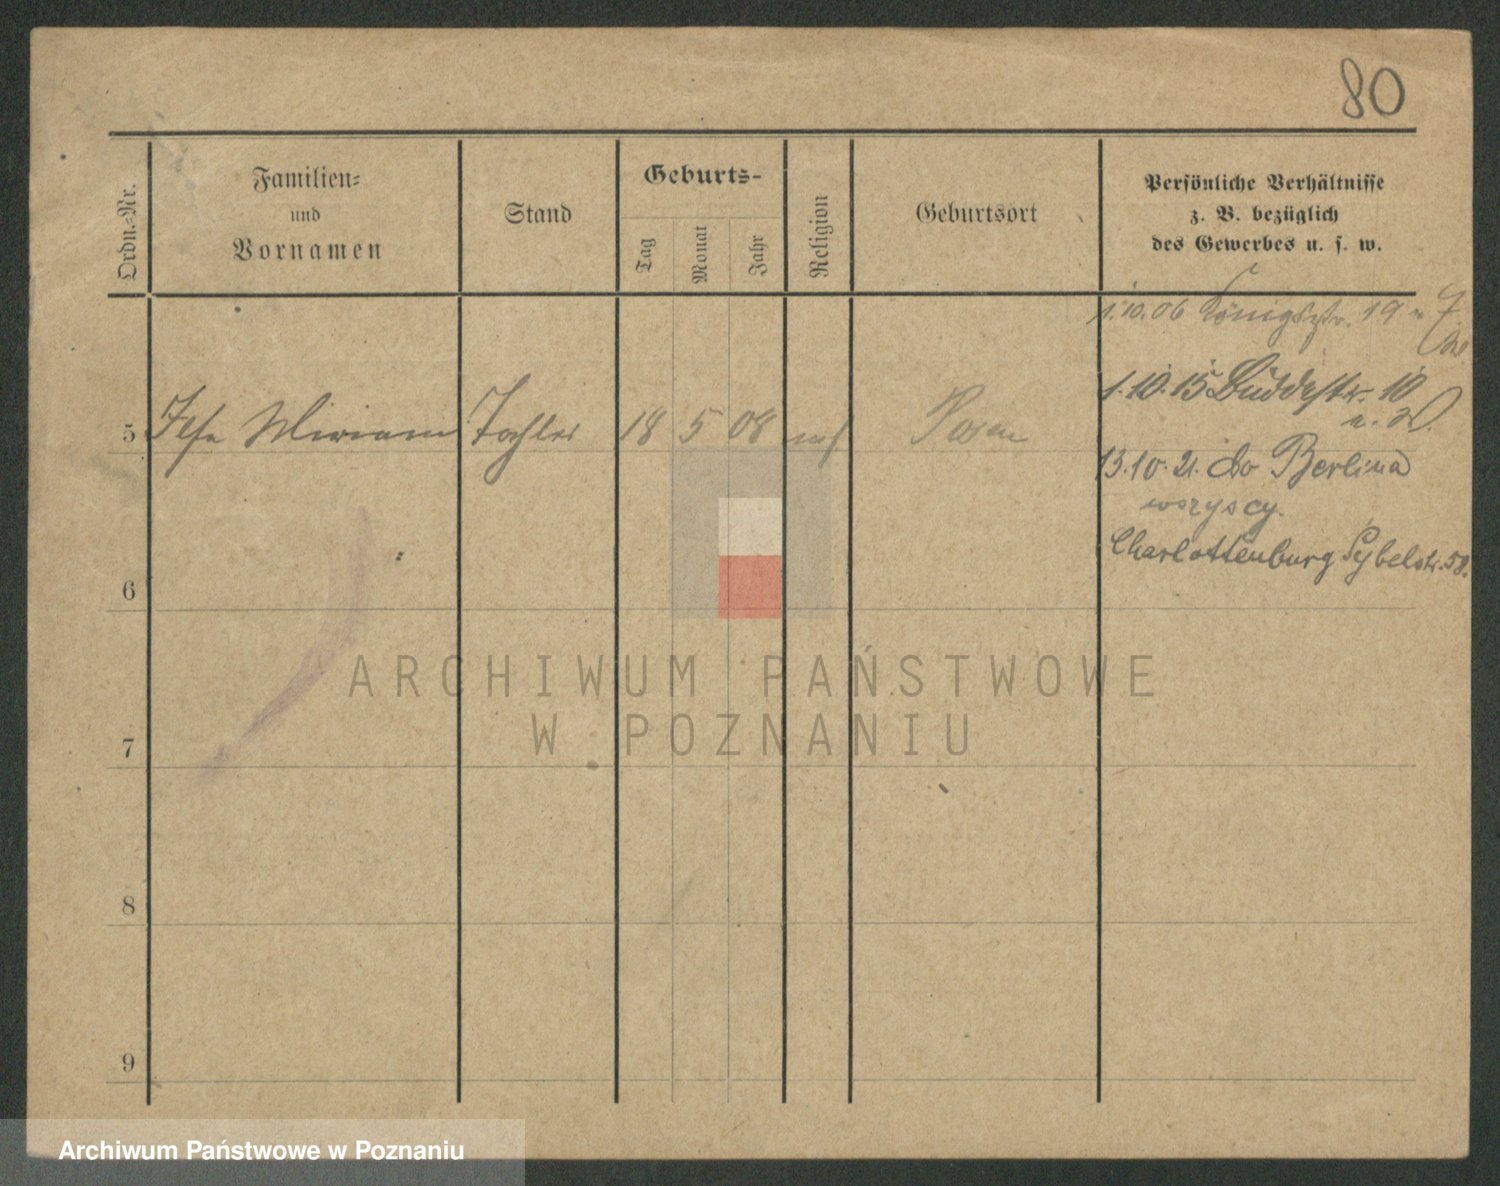 80
Ordn.=Nr.
Familien=
und
Vornamen
Stand
Geburts-
Tag
Monat
Jahr
Religion
Geburtsort
Persönliche Verhältnisse
z. B. bezüglich
des Gewerbes u. s. w.
1.10.06 Königstr. 19
1.10.15 Buddestr. 10
5 Miriam Tochter 18 5 08 Posen
13.10.21. do Berlina
wszyscy.
Charlottenburg Sybelstr. 58.
6
7
8
9
ARCHIWUM PAŃSTWOWE
W POZNANIU
Archiwum Państwowe w Poznaniu